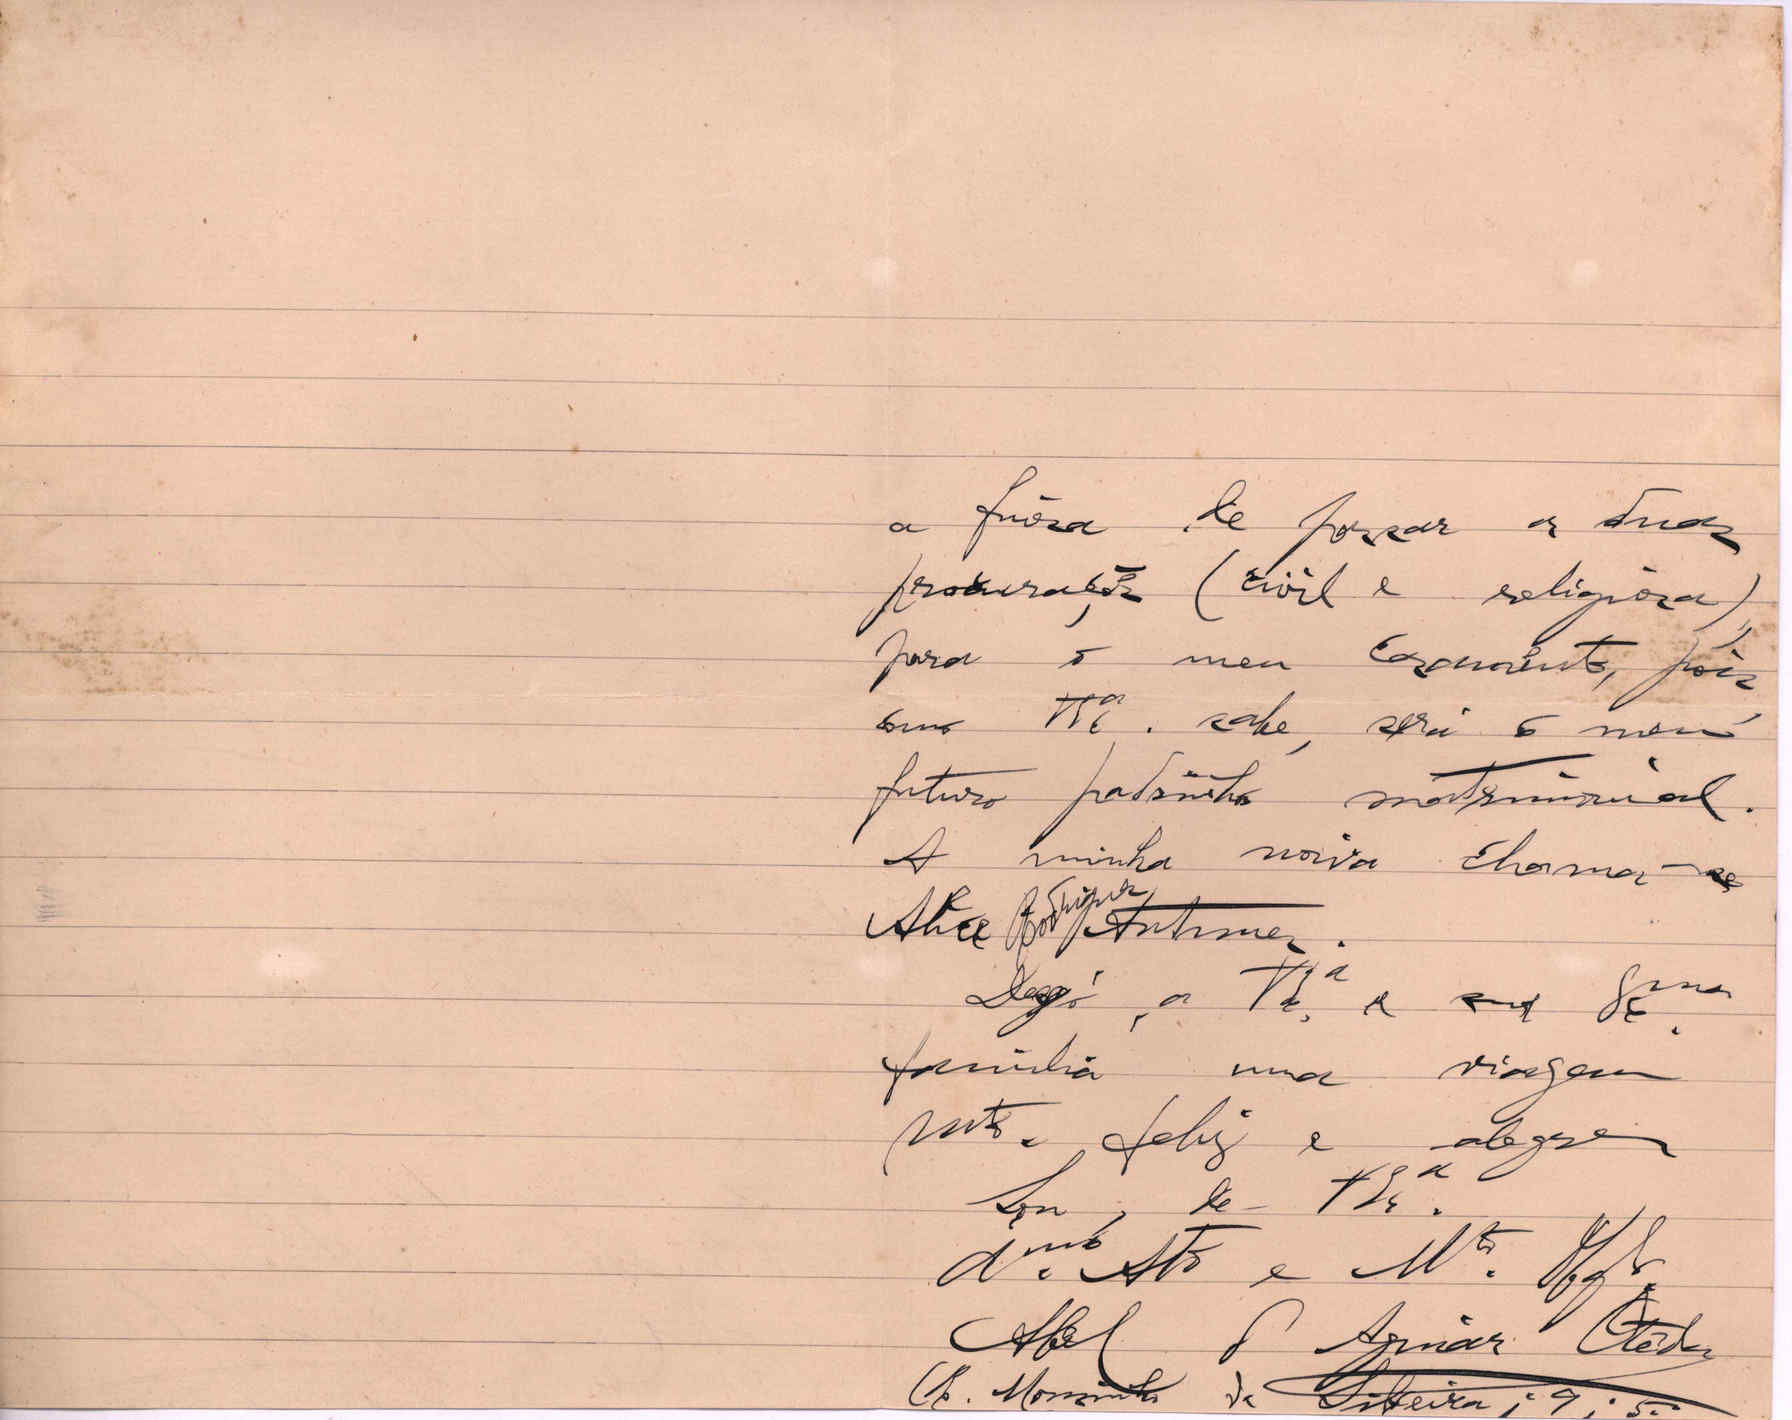 a finêza de passar as duas
procurações (civil e religiosa),
para o meu casamento, pois
como V. Ex.ª sabe, será o meu
futuro padrinho matrimonial.
A minha noiva chama-se
Alice Rodrigues Antunes.
Desejo, a V. Ex.ª e sua Ex.ma
família uma viagem
mto. feliz e alegre
Sou, de V. Ex.ª
Abel d' Aguiar
(R. Mousinho da Silveira, 9, 5.